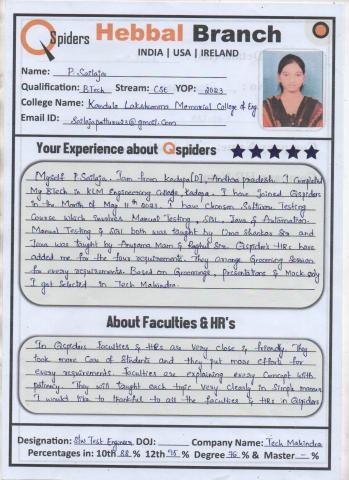 Qspiders Hebbal Branch
INDIA | USA | IRELAND
Name: P. Sailaja
Qualification: B.Tech Stream: CSE YOP: 2023
College Name: Kandula Lakshumma Memorial College of Eng.
Email ID: @gmail.com
Your Experience about Qspiders
Myself P. Sailaja. I am from kadapa[D], Andhra pradesh. I completed
My Btech in KLM Engineering College, kadapa. I have Joined Qspiders
in the Month of May 11th 2023. I have Choosen Software Testing
Course which involves Manual Testing, SQL, Java & Automation.
Manual Testing & SQL both was taught by Uma Shankar Sir and
Java was taught by Anupama Mam & Sir. Qspiders HRs have
added me for the requirements. They arrange Grooming Session
for every requirements. Based on Groomings, presentations & Mock only
I got Selected in Tech Mahindra.
About Faculties & HR's
In Qspiders Faculties & HRs are very close & friendly. They
took more Care of Students and they put more efforts for
every requirements. Faculties are explaining every Concept with
patiency. They will taught each topic Very clearly in Simple manner
I would like to thankful to all the faculties & HRs in Qspiders
Designation: S/w Test Engineer DOJ: Company Name: Tech Mahindra
Percentages in: 10th 88 % 12th 95 % Degree 76 % & Master - %